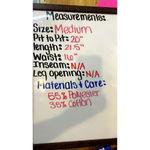 Measurements:
Size: Medium
Pit to Pit: 20"
length: 21.5"
Waist: 16"
Inseam: N/A
Leg opening: N/A
Materials & Care:
65% Polyester
35% Cotton